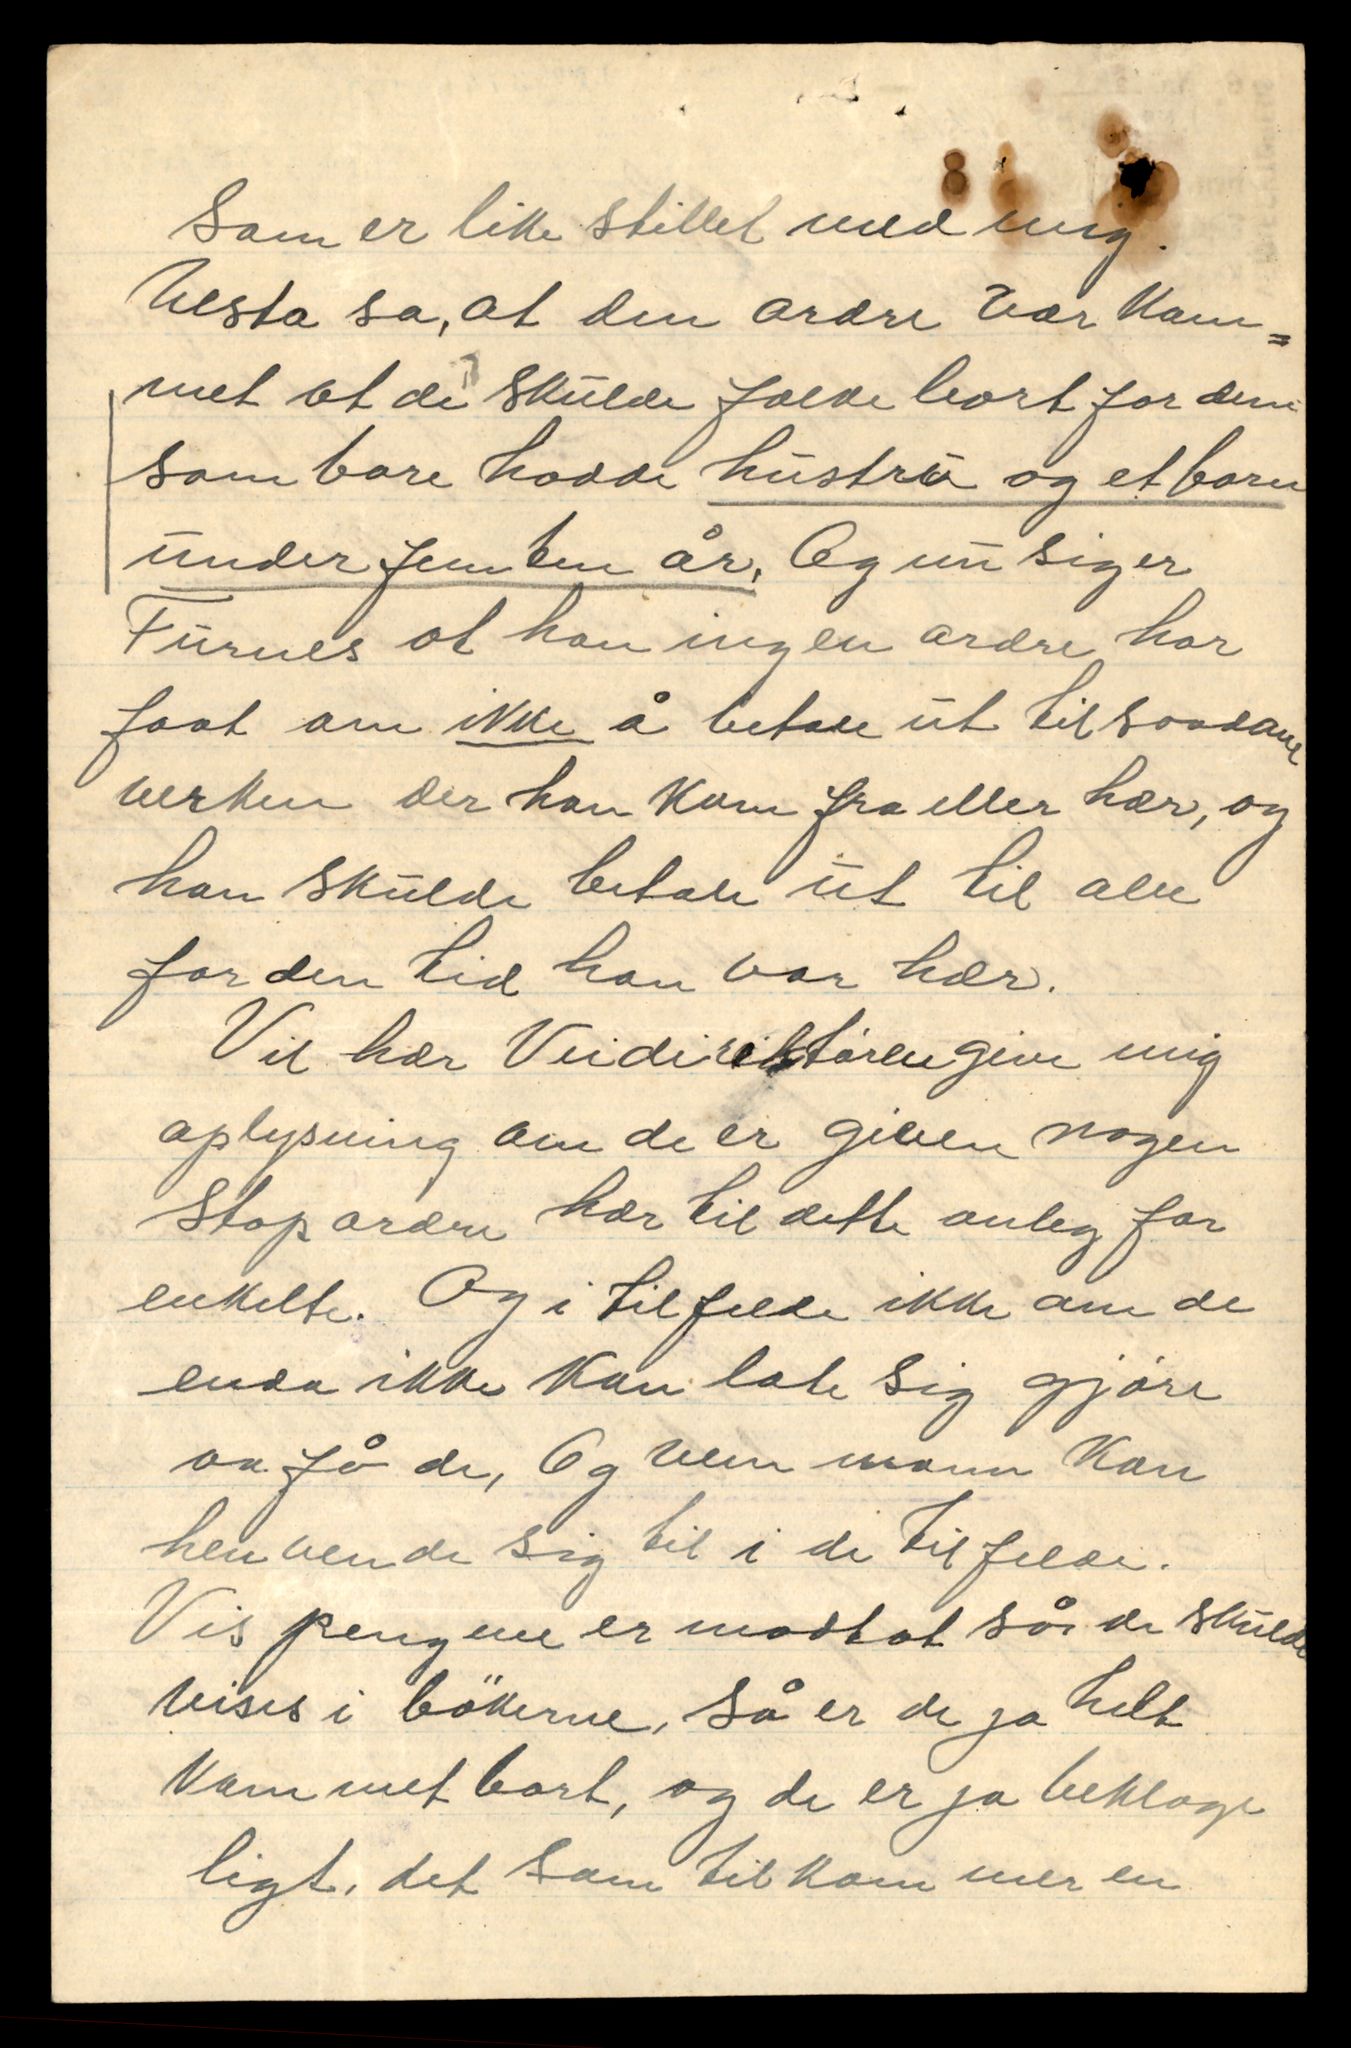 Som er like stillet med mig.
Vesta sa, at den ordre var kom=
met at de skulde falde bort for dem
som bare hadde hustru og et barn
under femten år. Og nu siger
Furnes at han ingen ordre har
faat om ikke å betale ut til saadane
verken der han kom fra eller hær, og
han skulde betale ut til alle
for den tid han var hær.
Vil hær Veidirektøren give mig
oplysning om de er given nogen
Stop ordre hær til dette anleg for
enkelte. Og i tilfelde ikke om de
enda ikke kan late sig gjøre
aa få de, Og vem mann kan
henvende sig til i de tilfelde.
Vis pengene er modtat så de skulde
vises i bökerne, så er de ja helt
kommet bort, og de er ja beklage
ligt, det som tilkommer en